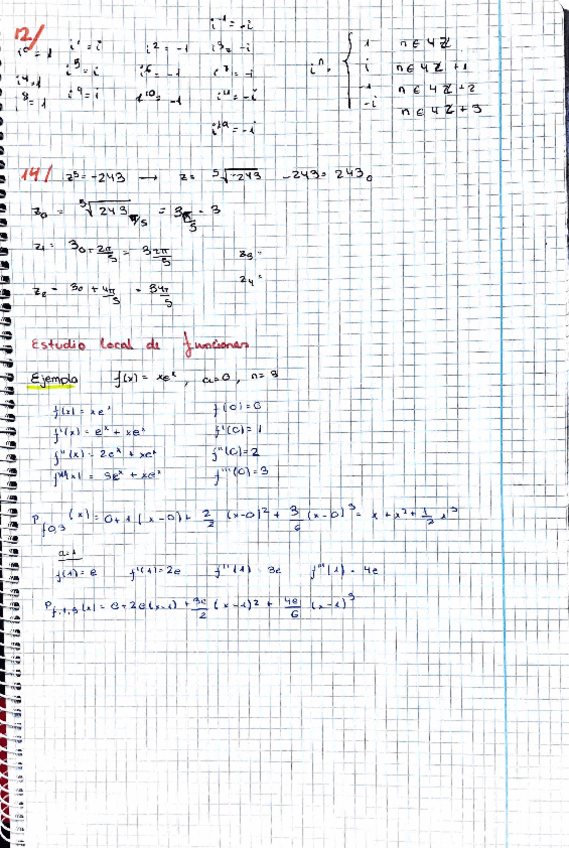 12/
i⁻¹ = -i
i⁰ = 1 i¹ = i i² = -1 i³ = -i
i⁴ = 1 i⁵ = i i⁶ = -1 i⁷ = -i
i⁸ = 1 i⁹ = i i¹⁰ = -1 i¹¹ = -i
iⁿ = { 1 n ∈ 4Z
i n ∈ 4Z + 1
-1 n ∈ 4Z + 2
-i n ∈ 4Z + 3
14/ z⁵ = -243 → z = ⁵√-243 -243 = 243₀
z₀ = ⁵√243 π/5 = 3 π/5 · 3
z₁ = 3₀ + 2π/5 = 3 2π/5 z₃ =
z₂ = 3₀ + 4π/5 = 3 4π/5 z₄ =
Estudio local de funciones
Ejemplo f(x) = xeˣ , a=0 , n=3
f(x) = xeˣ f(0) = 0
f'(x) = eˣ + xeˣ f'(0) = 1
f''(x) = 2eˣ + xeˣ f''(0) = 2
f'''(x) = 3eˣ + xeˣ f'''(0) = 3
P f,0,3 (x) = 0 + 1 (x-0) + 2/2 (x-0)² + 3/6 (x-0)³ = x + x² + 1/2 x³
a=1
f(1) = e f'(1) = 2e f''(1) = 3e f'''(1) = 4e
P f,1,3 (x) = e + 2e(x-1) + 3e/2 (x-1)² + 4e/6 (x-1)³